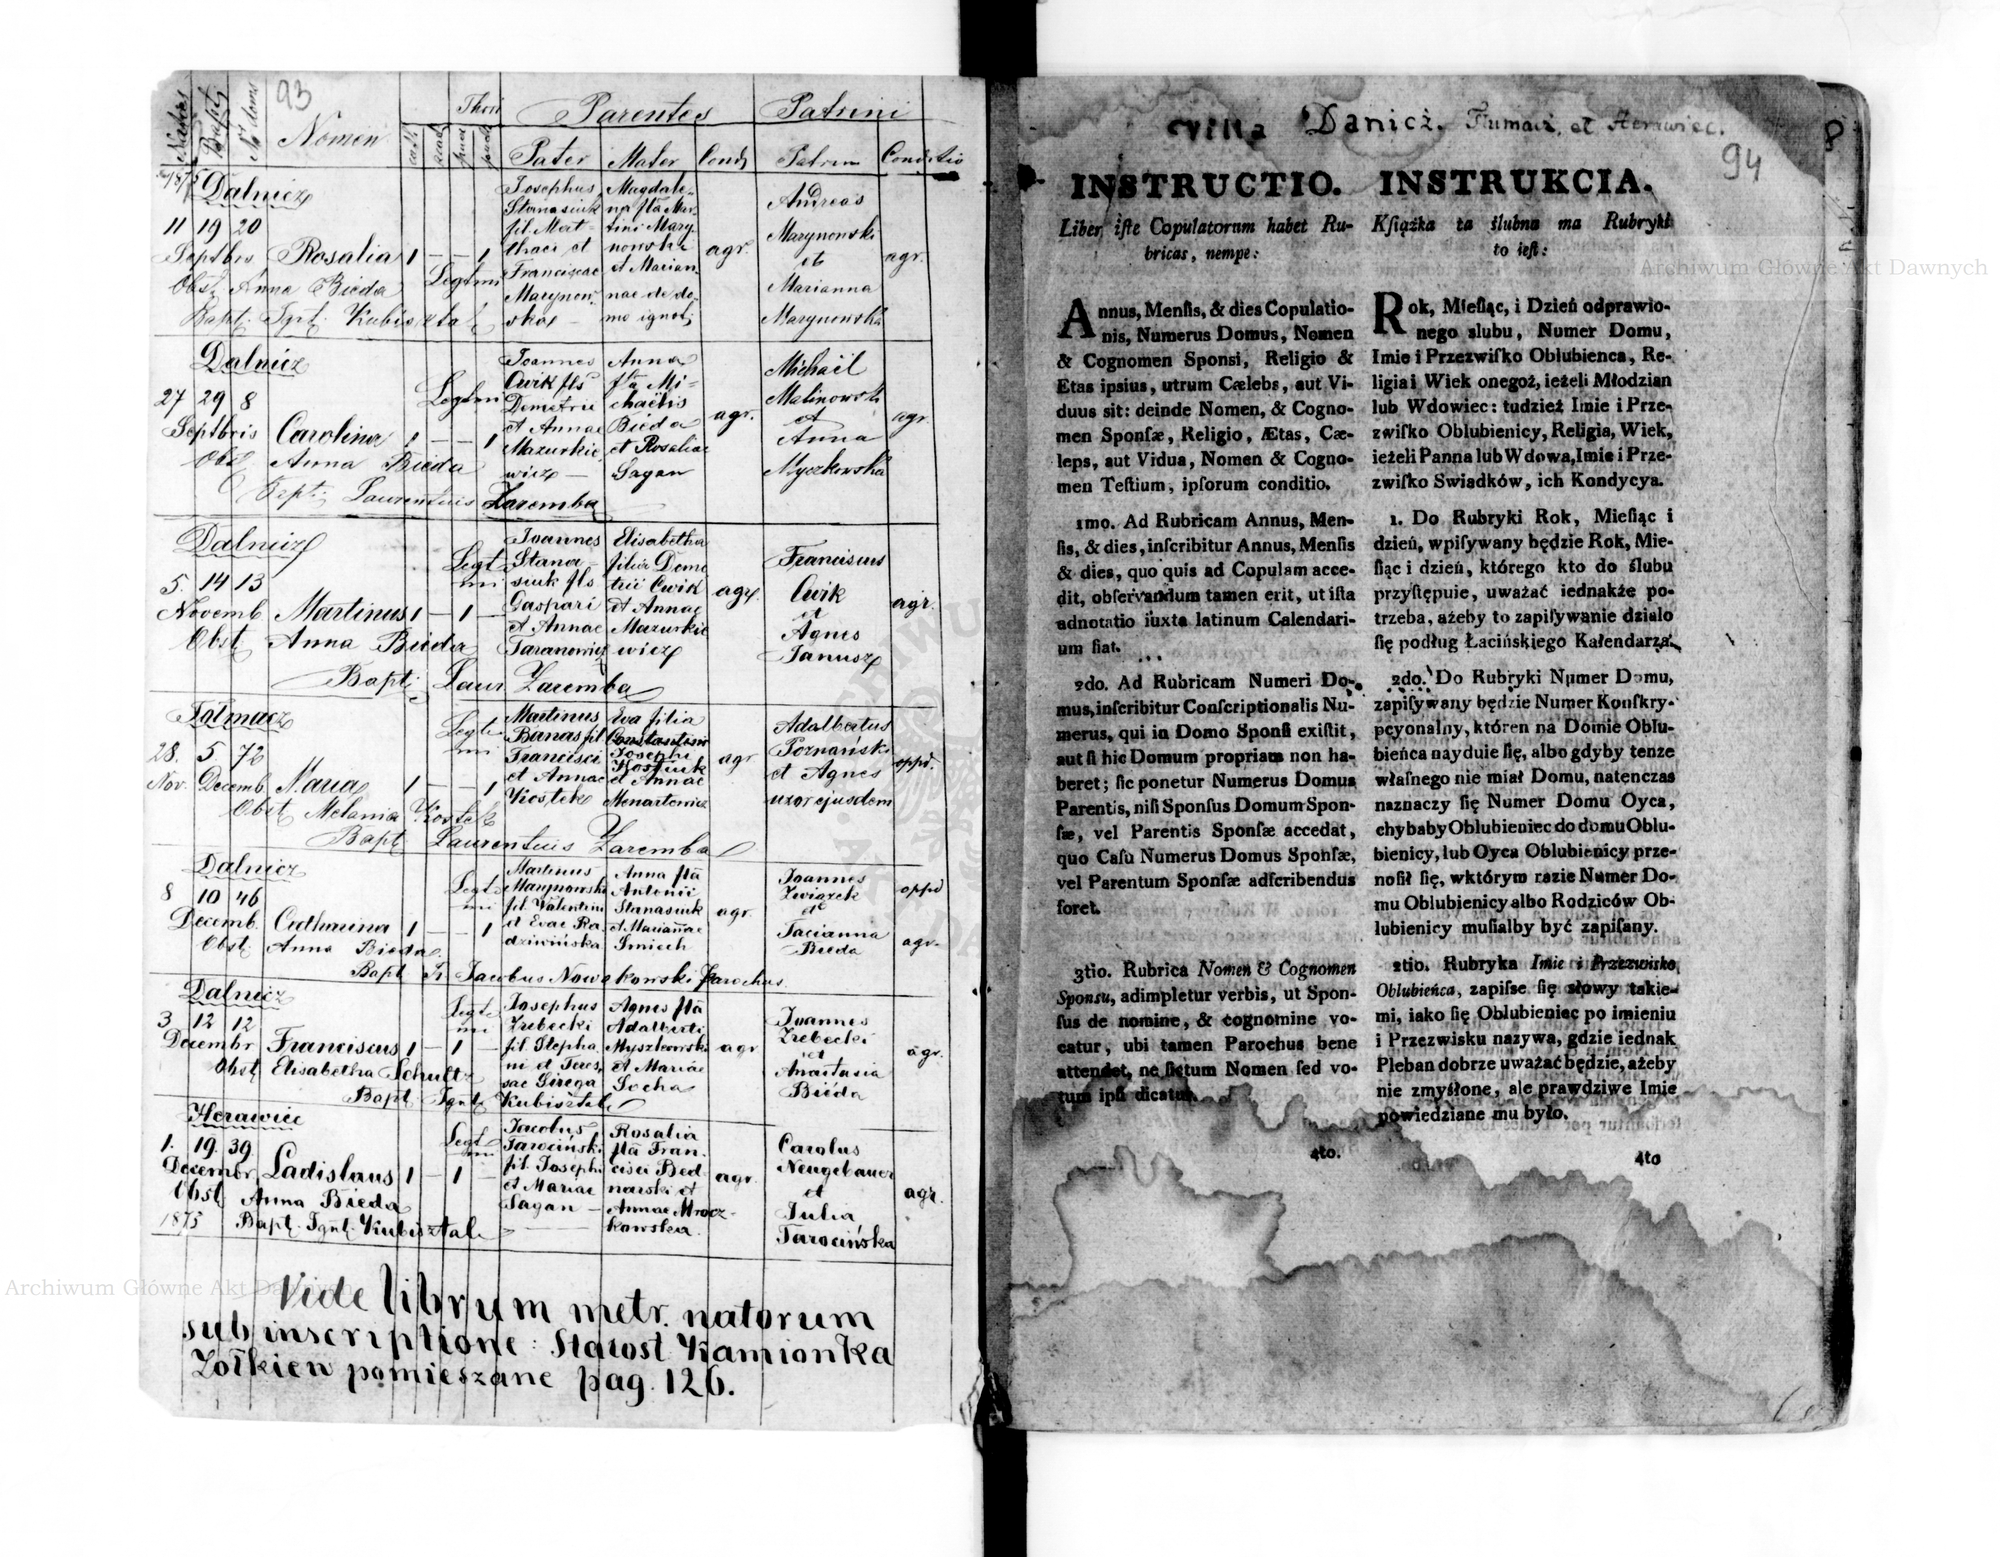 93
Natus
Bapt
N. doms
Nomen
cath
acath
puer
puella
Thori
Parentes
Patrini
Pater
Mater
Cond
Patrini
Conditio
1875
Dalnicz
11 19 20
Septbris
Rosalia 1 — — 1
Legtmi
Obst. Anna Bieda
Bapt. Ign. Kubisztal
Josephus
Stanasiuk
fil. Mat-
thaei et
Franciscae
Marynow-
skax —
Magdale-
na fta Mar-
tini Mary-
nowski
et Marian-
nae de do-
mo ignot.
agr.
Andreas
Marynowski
et
Marianna
Marynowska
agr.
Dalnicz
27 29 8
Septbris
Carolina 1 — — 1
Legtmi
Obst. Anna Bieda
Bapt. Laurentius Zaremba
Joannes
Cwik fls
Demetrii
et Annae
Mazurkie-
wicz —
Anna
fta Mi-
chaëlis
Bieda
et Rosaliae
Sagan
agr.
Michaël
Malinowski
et
Anna
Myczkowska
agr.
Dalnicz
5. 14 13
Novemb. Martinus 1 — 1 —
Legt
mi
Obst Anna Bieda
Bapt. Laur Zaremba
Joannes
Stana-
siuk fls
Gaspari
et Annae
Taranowicz
Elisabetha
filia Deme
trii Cwik
et Annae
Mazurkie
wicz
agr.
Franciscus
Cwik
et
Agnes
Janusz
agr.
Tolmacz
28. 5. 72
Nov. Decemb. Maria 1 — — 1
Legti
mi
Obst Melania Kostek
Bapt Laurentius Zaremba
Martinus
Banas fil
Francisci
et Annae
Kostek
Eva filia
Josephi
Kostiuk
et Annae
Menartowicz
agr
Adalbertus
Poznański
et Agnes
uxor ejusdem
oppd.
Dalnicz
8 10 46
Decemb. Catharina 1 — — 1
Legt
mi
Obst. Anna Bieda
Bapt Jacobus Nowakowski Parochus.
Martinus
Marynowski
fil. Valentini
et Evae Ra-
dziwińska
Anna fta
Antonii
Stanasiuk
et Mariannae
Smiech
agr.
Joannes
Zwiazek
et
Tacianna
Bieda
oppd
agr.
Dalnicz
3 12 12
Decembr Franciscus 1 — 1 —
Legt
mi
Obst. Elisabetha Schultz
Bapt. Ignt. Kubisztal
Josephus
Zrebecki
fil. Stepha-
ni et Teres-
sae Girega
Agnes fta
Adalberti
Myszkowski
et Mariae
Socha
agr
Joannes
Zrebecki
et
Anastasia
Bieda
agr.
Herawiec
1. 19. 39.
Decembr. Ladislaus 1 — 1 —
Legt
mi
Obst. Anna Bieda
1875 Bapt. Ignt. Kubisztal
Jacobus
Tarociński
fil. Josephi
et Mariae
Sagan —
Rosalia
fta Fran-
cisci Bed-
narski et
Annae Mrocz-
kowska.
agr.
Carolus
Neugebauer
et
Julia
Tarocińska
agr.
Vide librum metr. natorum
sub inscriptione: Starost Kamionka
Żołkiew pomieszane pag. 126.
Archiwum Główne Akt Dawnych
Villa Danicż. Tłumacz, et Herawiec.
8
94
INSTRUCTIO.
Liber iſte Copulatorum habet Ru-
bricas, nempe:
Annus, Menſis, & dies Copulatio-
nis, Numerus Domus, Nomen
& Cognomen Sponſi, Religio &
Etas ipsius, utrum Cælebs, aut Vi-
duus sit: deinde Nomen, & Cogno-
men Sponſæ, Religio, Ætas, Cæ-
leps, aut Vidua, Nomen & Cogno-
men Teſtium, ipſorum conditio.
1mo. Ad Rubricam Annus, Men-
ſis, & dies, inſcribitur Annus, Menſis
& dies, quo quis ad Copulam acce-
dit, obſervandum tamen erit, ut iſta
adnotatio iuxta latinum Calendari-
um fiat.
2do. Ad Rubricam Numeri Do-
mus, inſcribitur Conſcriptionalis Nu-
merus, qui in Domo Sponſi exiſtit,
aut ſi hic Domum propriam non ha-
beret; ſic ponetur Numerus Domus
Parentis, niſi Sponſus Domum Spon-
ſæ, vel Parentis Sponſæ accedat,
quo Caſu Numerus Domus Sponſæ,
vel Parentum Sponſæ adſcribendus
foret.
3tio. Rubrica Nomen & Cognomen
Sponsu, adimpletur verbis, ut Spon-
ſus de nomine, & cognomine vo-
catur, ubi tamen Parochus bene
attendet, ne fictum Nomen ſed vo-
tum ipſi dicatur.
4to.
INSTRUKCIA.
Kſiążka ta ślubna ma Rubryki
to ieſt:
Rok, Mieſiąc, i Dzień odprawio-
nego slubu, Numer Domu,
Imie i Przezwiſko Oblubienca, Re-
ligia i Wiek onegoż, ieżeli Młodzian
lub Wdowiec: tudzież Imie i Prze-
zwiſko Oblubienicy, Religia, Wiek,
ieżeli Panna lub Wdowa, Imie i Prze-
zwiſko Swiadków, ich Kondycya.
1. Do Rubryki Rok, Mieſiąc i
dzień, wpiſywany będzie Rok, Mie-
ſiąc i dzień, którego kto do ślubu
przyſtępuie, uważać iednakże po-
trzeba, ażeby to zapiſywanie działo
ſię podług Łacińſkiego Kalendarza.
2do. Do Rubryki Numer Domu,
zapiſywany będzie Numer Konſkry-
pcyonalny, któren na Domie Oblu-
bieńca nayduie ſię, albo gdyby tenże
właſnego nie miał Domu, natenczas
naznaczy ſię Numer Domu Oyca,
chybaby Oblubieniec do domu Oblu-
bienicy, lub Oyca Oblubienicy prze-
noſił ſię, w którym razie Numer Do-
mu Oblubienicy albo Rodziców Ob-
lubienicy muſiałby być zapiſany.
2tio. Rubryka Imie i Przezwisko
Oblubieńca, zapiſze ſię słowy takie-
mi, iako ſię Oblubieniec po imieniu
i Przezwisku nazywa, gdzie iednak
Pleban dobrze uważać będzie, ażeby
nie zmyślone, ale prawdziwe Imie
powiedziane mu było.
4to
Archiwum Główne Akt Dawnych